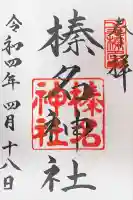 奉拝
榛名神社
榛名
神社
令和四年四月十八日